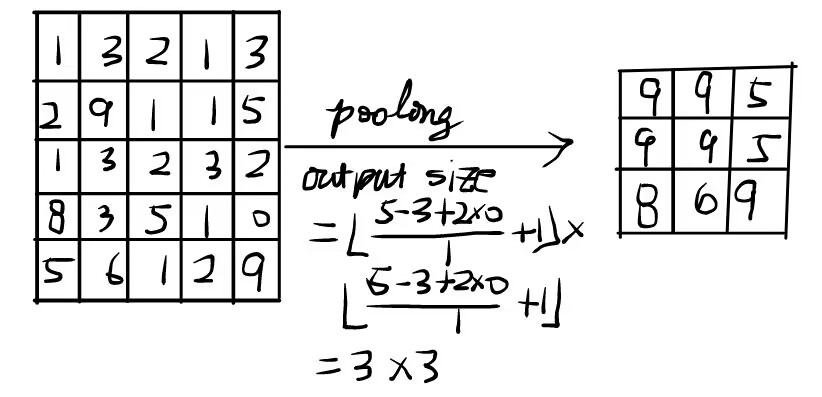 1 3 2 1 3
2 9 1 1 5
1 3 2 3 2
8 3 5 1 0
5 6 1 2 9
poolong
output size
= ⌊(5-3+2×0)/1 +1⌋ ×
⌊(5-3+2×0)/1 +1⌋
= 3 × 3
9 9 5
9 9 5
8 6 9